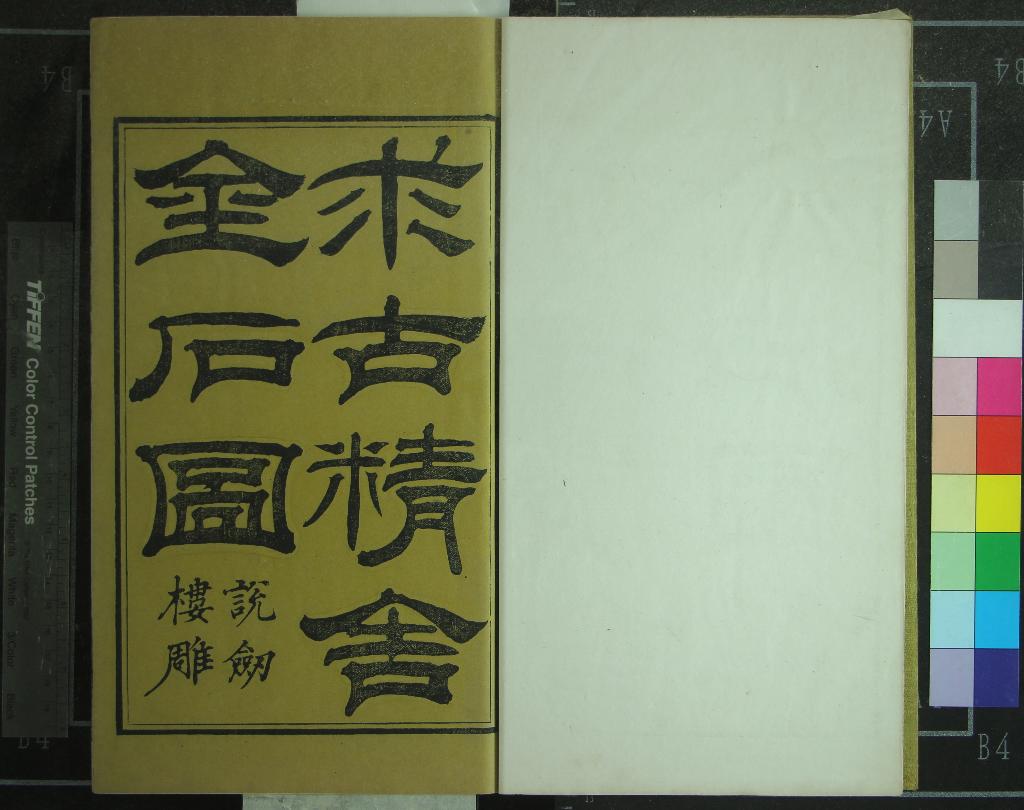 求古精舍
金石圖
說劒
樓雕
TIFFEN Color Control Patches
B4
A4
B4
B4
B4